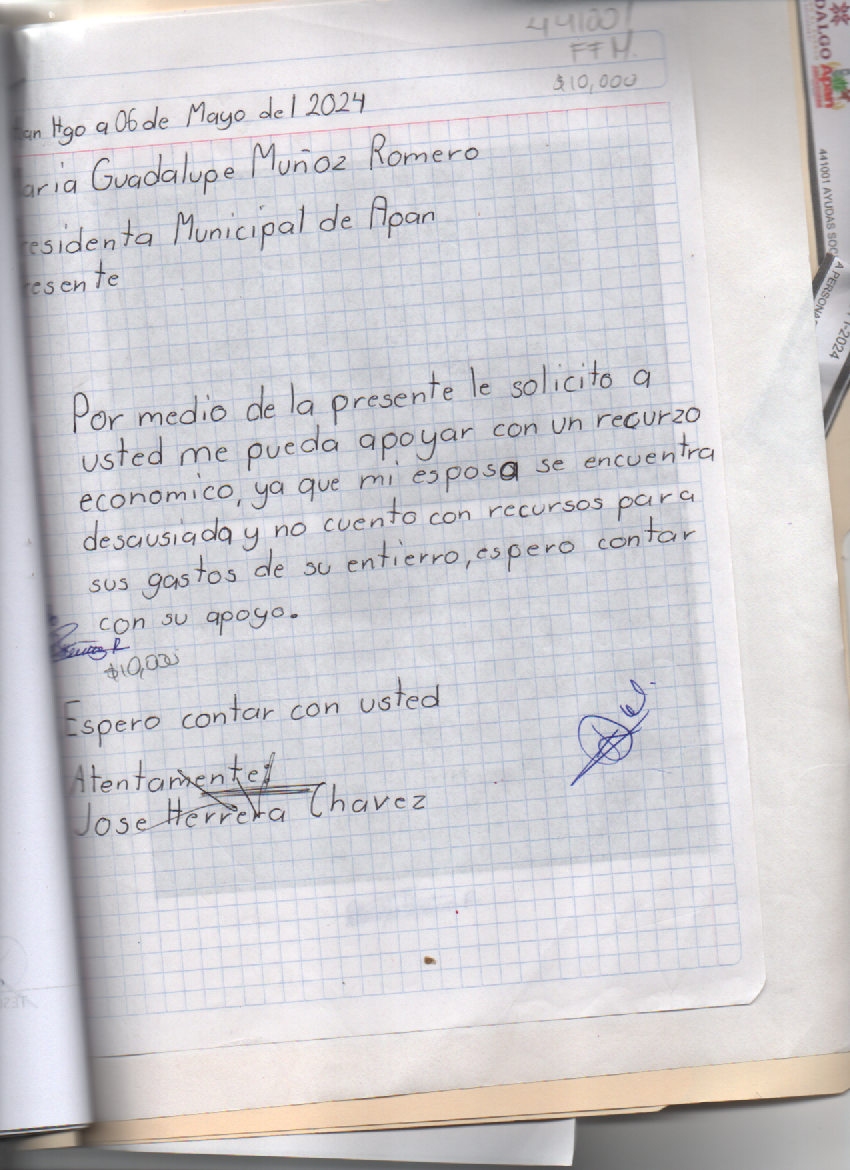 44100/
FFM.
$10,000
an Hgo a 06 de Mayo del 2024
aria Guadalupe Muñoz Romero
esidenta Municipal de Apan
esente
Por medio de la presente le solicito a
usted me pueda apoyar con un recurzo
economico, ya que mi esposa se encuentra
desausiada y no cuento con recursos para
sus gastos de su entierro, espero contar
con su apoyo.
$10,000
Espero contar con usted
Atentamente
Jose Herrera Chavez
DALGO
Apan
441001 AYUDAS SOC
A PERSONA
-2024